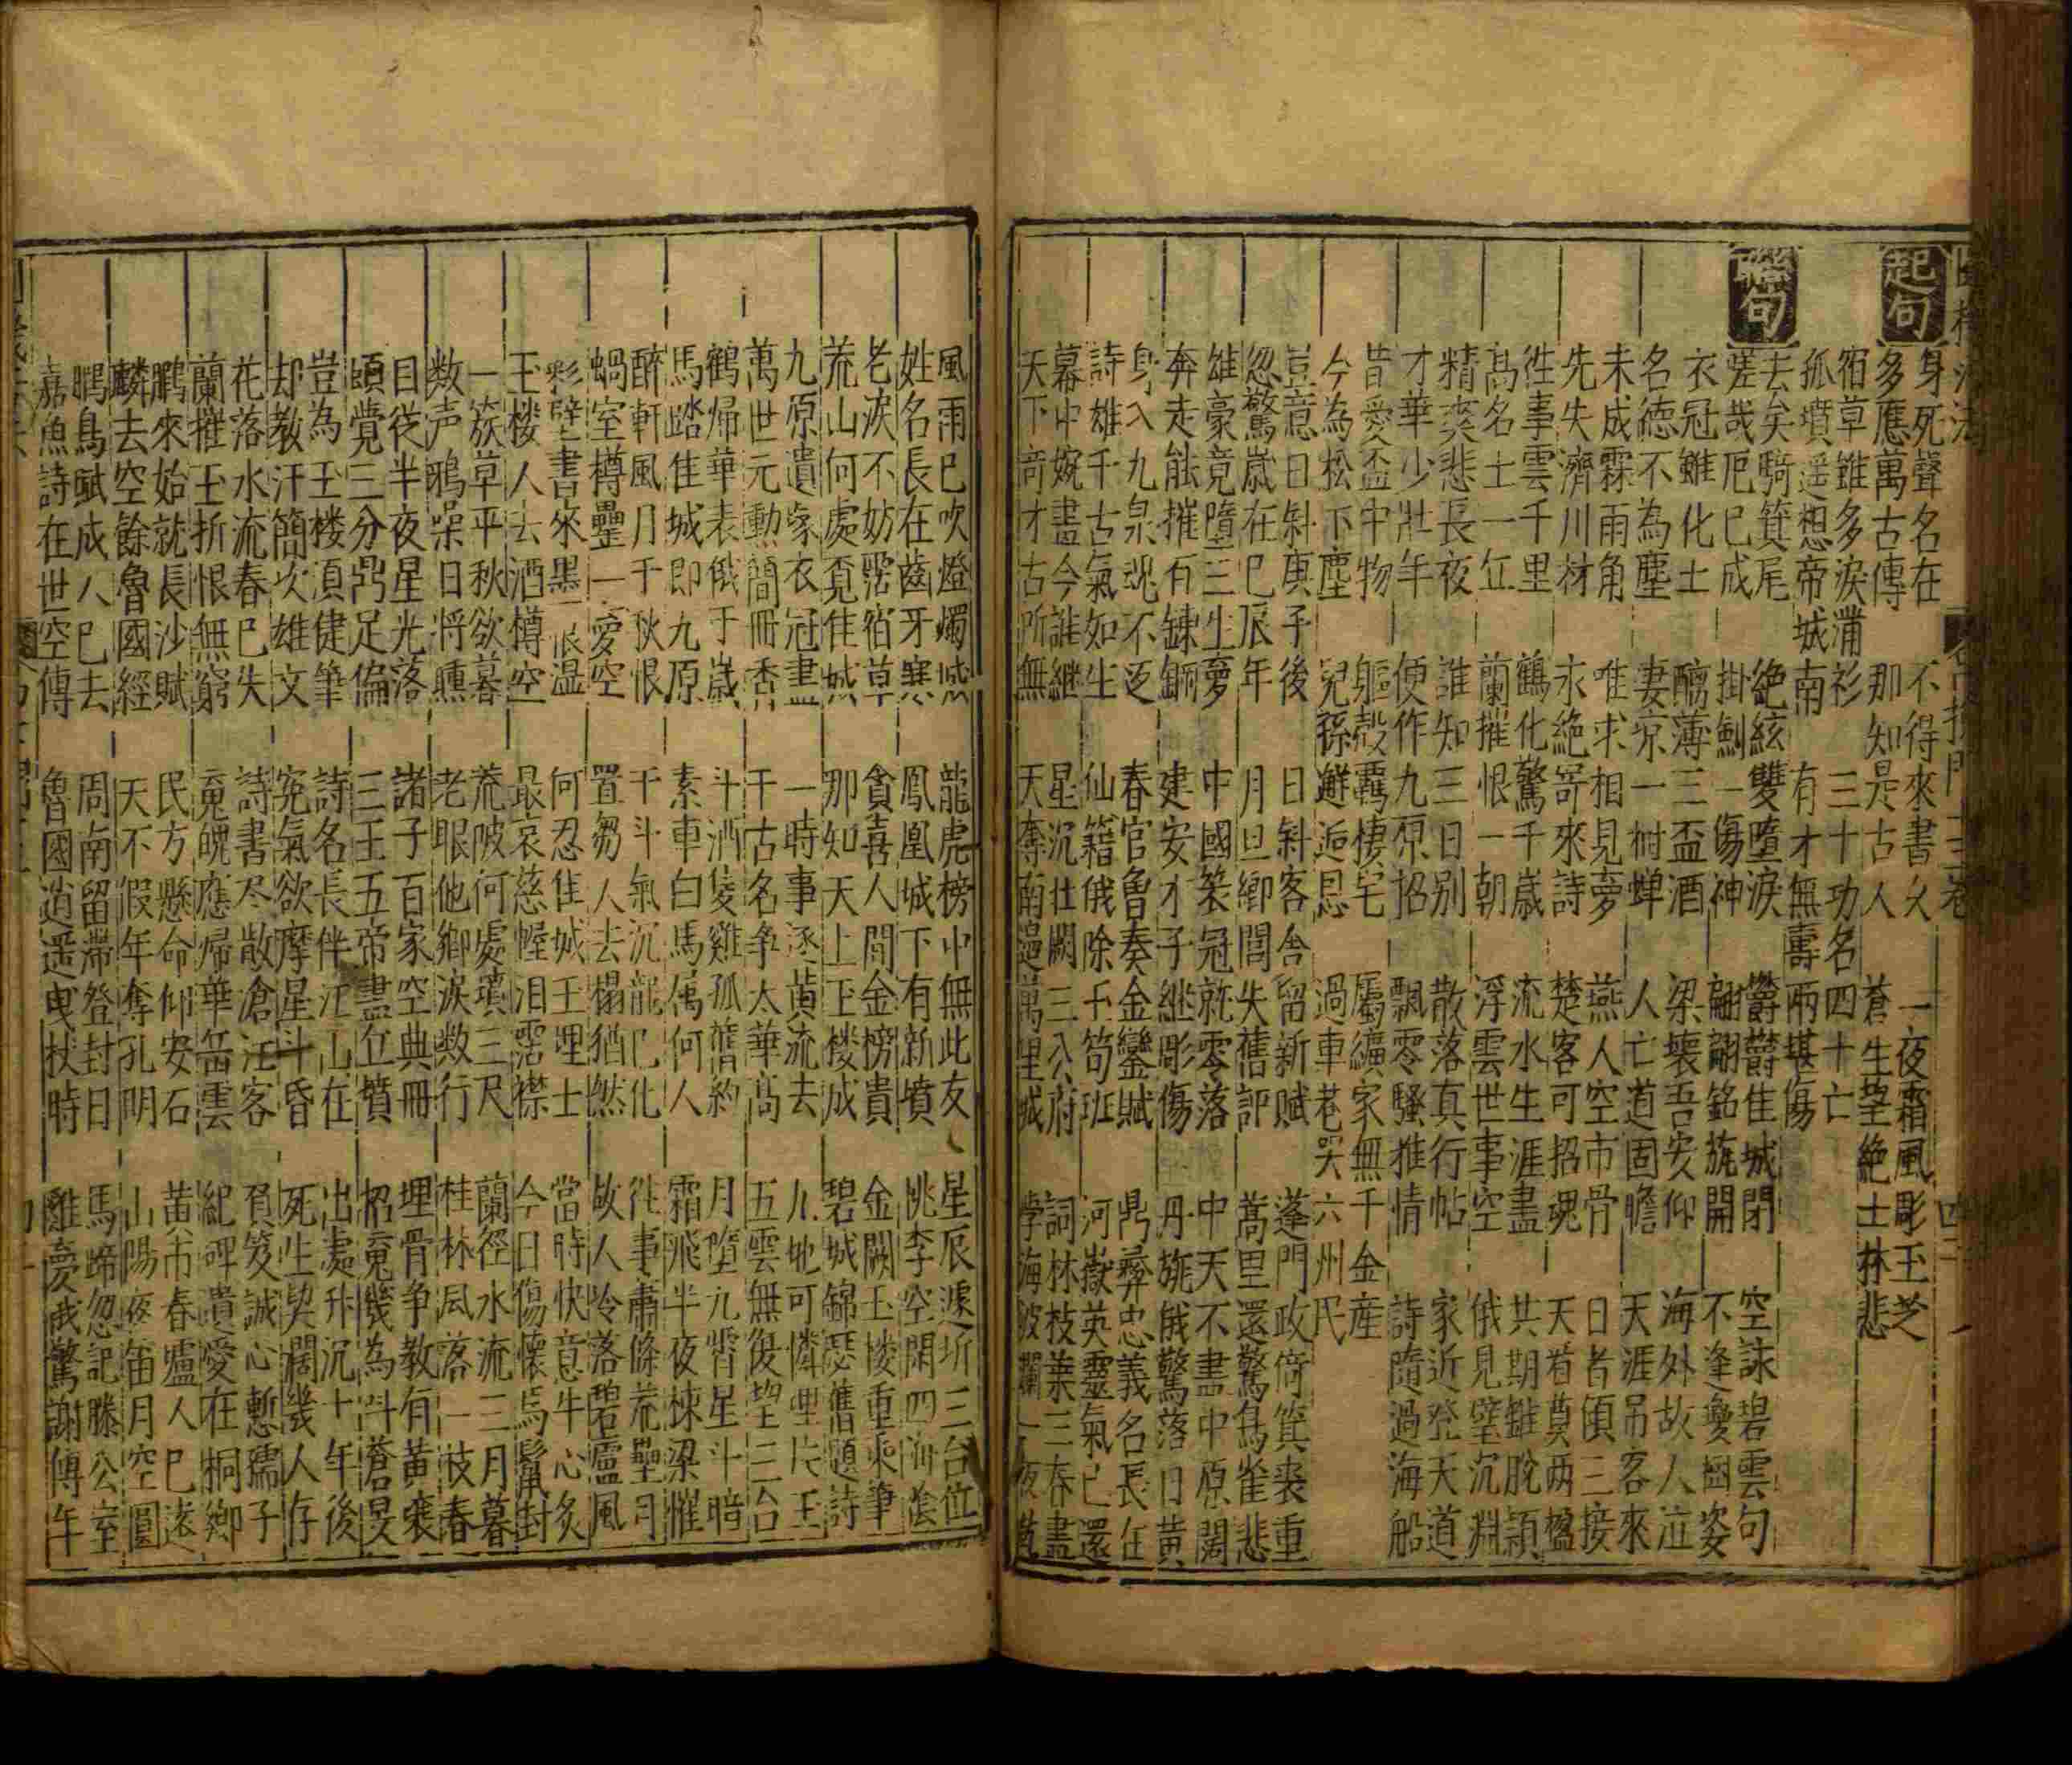 起句
身死聲名在 不得來書久 一夜霜風彫玉芝
多應萬古傳 那知是古人 蒼生望絶士林悲
宿草雖多淚滿衫 三十功名四十亡
孤墳遥想帝城南 有才無壽兩堪傷
聯句
去矣騎箕尾 絶絃雙墮淚 欝欝佳城閉 空詠碧雲句
嗟哉厄巳成 掛劍一傷神 翩翩銘旐開 不逢瓊國姿
衣冠雖化土 酾薄三盃酒 梁壊吾安仰 海外故人泣
名德不為塵 妻凉一樹蟬 人亡道固瞻 天涯吊客來
未成霖雨角 唯求相見夢 燕人空市骨 日者傾三接
先失濟川材 永絶寄來詩 楚客可招魂 天着奠两楹
徃事雲千里 鶴化驚千歳 流水生涯盡 共期錐脫頴
高名士一丘 蘭摧恨一朝 浮雲世事空 俄見璧沉淵
精爽悲長夜 誰知三日别 散落真行帖 家近登天道
才華少壯年 便作九原招 飄零騷雅情 詩隨過海船
昔愛盃中物 軀殻覊棲宅 屬纊家無千金産
今為松下塵 兒孫邂逅恩 過車巷哭六州民
豈意日斜庚子後 日斜客舍留新賦 蓬門政倚箕裘重
忽驚歳在巳辰年 月旦鄉閭失舊評 蒿里還驚鳥雀悲
雄豪竟墮三生夢 中國築冠就零落 中天不盡中原闊
奔走能摧百鍊鋼 建安才子継彫傷 丹旐俄驚落日黄
身入九泉魂不返 春官魯奏金鑾賦 鼎彛忠義名長在
詩雄千古氣如生 仙籍俄除玉笥班 河嶽英靈氣已還
幕中婉畫今誰継 星沉壮闕三公府 詞林枝葉三春盡
天下竒才古所無 天奪南邊萬里城 學海波瀾一夜乾
風雨已吹燈燭滅 龍虎榜中無此友 星辰遽坼三台位
姓名長在齒牙寒 鳳凰城下有新墳 桃李空閑四海陰
老淚不妨霑宿草 貪喜人間金榜貴 金闕玉楼重乘筆
荒山何處覓佳城 那知天上玉楼成 碧城錦瑟舊題詩
九原遺家衣冠盡 一時事逐黄流去 九地可憐埋片玉
萬世元勳簡冊香 千古名争太華高 五雲無復望三台
鶴帰華表俄千歳 斗酒隻雞孤舊約 月墮九霄星斗暗
馬踏佳城即九原 素車白馬属何人 霜飛半夜棟梁摧
醉軒風月千秋恨 干斗氣沉龍已化 徃事肅條荒壟月
蝸室樽罍一愛空 置芻人去榻猶然 故人冷落碧蘆風
彩壁書來墨一痕温 何忍佳城玉埋士 當時快意牛心炙
玉楼人去酒樽空 最哀慈幄泪霑襟 今日傷懷馬鬣封
一簇草平秋欲暮 荒陂何處墳三尺 蘭徑水流三月暮
数声鴉噪日将曛 老眼他鄉淚数行 桂林風落一枝春
目従半夜星光落 諸子百家空典冊 埋骨争教有黄壤
頭覺三分鼎足偏 三王五帝盡丘墳 招䰟幾為斗蒼旻
豈為玉楼須健筆 詩名長伴江山在 出處升沉十年後
却教汗簡欠雄文 寃氣欲摩星斗昏 死生契闊幾人存
花落水流春巳失 詩書尽散滄江客 負笈誠心慙孺子
蘭摧玉折恨無窮 䰟魄應帰華岳雲 紀碑遺愛在桐鄉
鵬來始就長沙賦 民方懸命仰安石 黄市春壚人已遠
麟去空餘魯國經 天不假年奪孔明 山陽夜笛月空圓
鵬鳥賦成人巳去 周南留滞登封日 馬蹄忽記滕公室
嘉魚詩在世空傳 魯國逍遥曳杖時 雞夢俄驚謝傅年